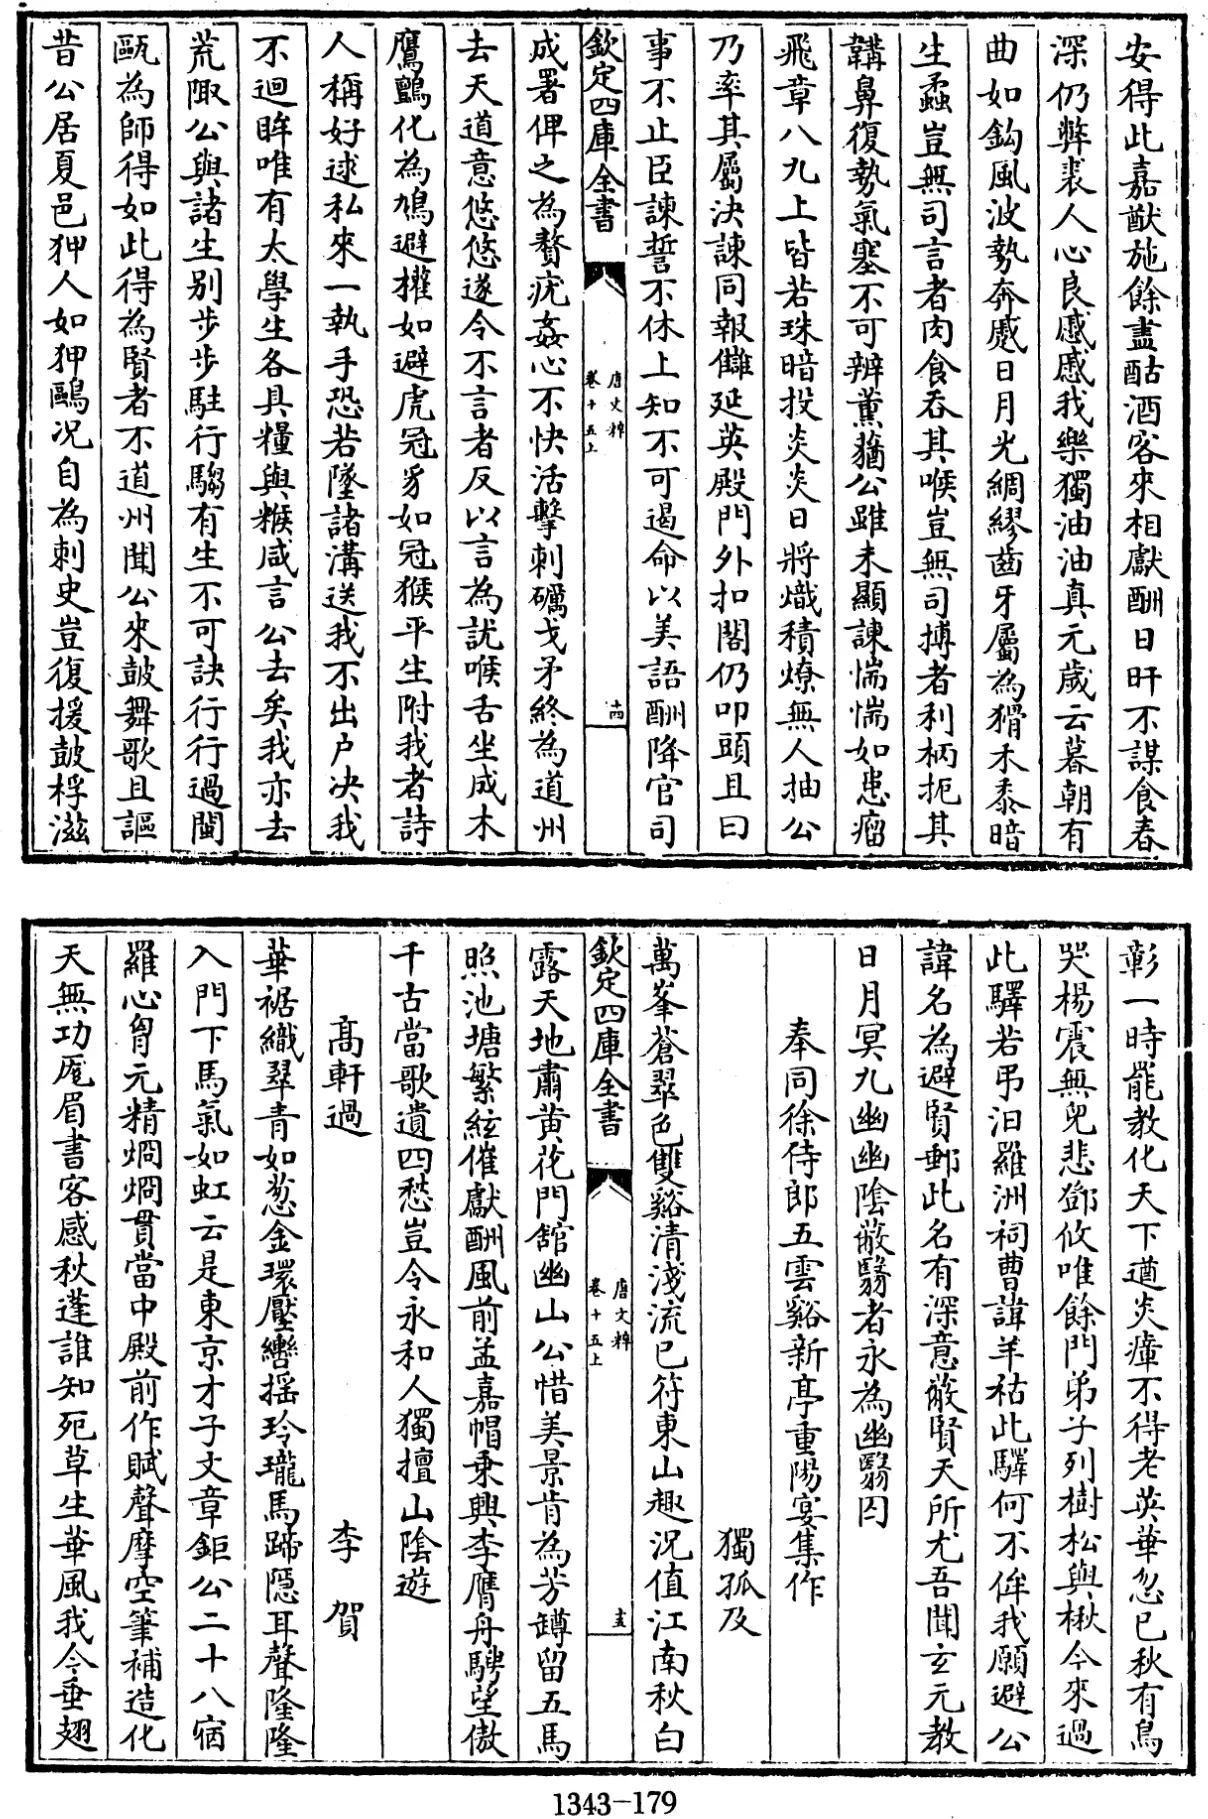 安得此嘉猷施餘盡酤酒客來相獻酬日旰不謀食春
深仍弊裘人心良慼慼我樂獨油油真元歲云暮朝有
曲如鈎風波勢奔蹙日月光綢繆齒牙屬為猾禾黍暗
生蟊豈無司言者肉食吞其喉豈無司搏者利柄扼其
韝鼻復勢氣塞不可辨薰蕕公雖未顯諫惴惴如患瘤
飛章八九上皆若珠暗投炎炎日將熾積燎無人抽公
乃率其屬決諫同報讎延英殿門外扣閤仍叩頭且曰
事不止臣諫誓不休上知不可遏命以美語酬降官司
欽定四庫全書
唐文粹
卷十五上
十四
成署俾之為贅疣姦心不快活擊刺礪戈矛終為道州
去天道意悠悠遂令不言者反以言為訧喉舌坐成木
鷹鸇化為鳩避權如避虎冠豸如冠猴平生附我者詩
人稱好逑私來一執手恐若墜諸溝送我不出户决我
不迴眸唯有太學生各具糧與糇咸言公去矣我亦去
荒陬公與諸生别步步駐行騶有生不可訣行行過閩
甌為師得如此得為賢者不道州聞公來鼓舞歌且謳
昔公居夏邑狎人如狎鷗况自為刺史豈復援鼓桴滋
彰一時罷教化天下遒炎瘴不得老英華忽已秋有鳥
哭楊震無兒悲鄧攸唯餘門弟子列樹松與楸今來過
此驛若弔汨羅洲祠曹諱羊祜此驛何不侔我願避公
諱名為避賢郵此名有深意蔽賢天所尤吾聞玄元教
日月冥九幽幽陰蔽翳者永為幽翳囚
奉同徐侍郎五雲谿新亭重陽宴集作
獨孤及
萬峯蒼翠色雙谿清淺流已符東山趣況值江南秋白
欽定四庫全書
唐文粹
卷十五上
十五
露天地肅黄花門館幽山公惜美景肯為芳罇留五馬
照池塘繁絃催獻酬風前孟嘉帽乗興李膺舟騁望傲
千古當歌遺四愁豈令永和人獨擅山陰遊
髙軒過
李賀
華裾織翠青如葱金環壓轡揺玲瓏馬蹄隠耳聲隆隆
入門下馬氣如虹云是東京才子文章鉅公二十八宿
羅心胷元精烱烱貫當中殿前作賦聲摩空筆補造化
天無功厖眉書客感秋蓬誰知死草生華風我今垂翅
1343-179